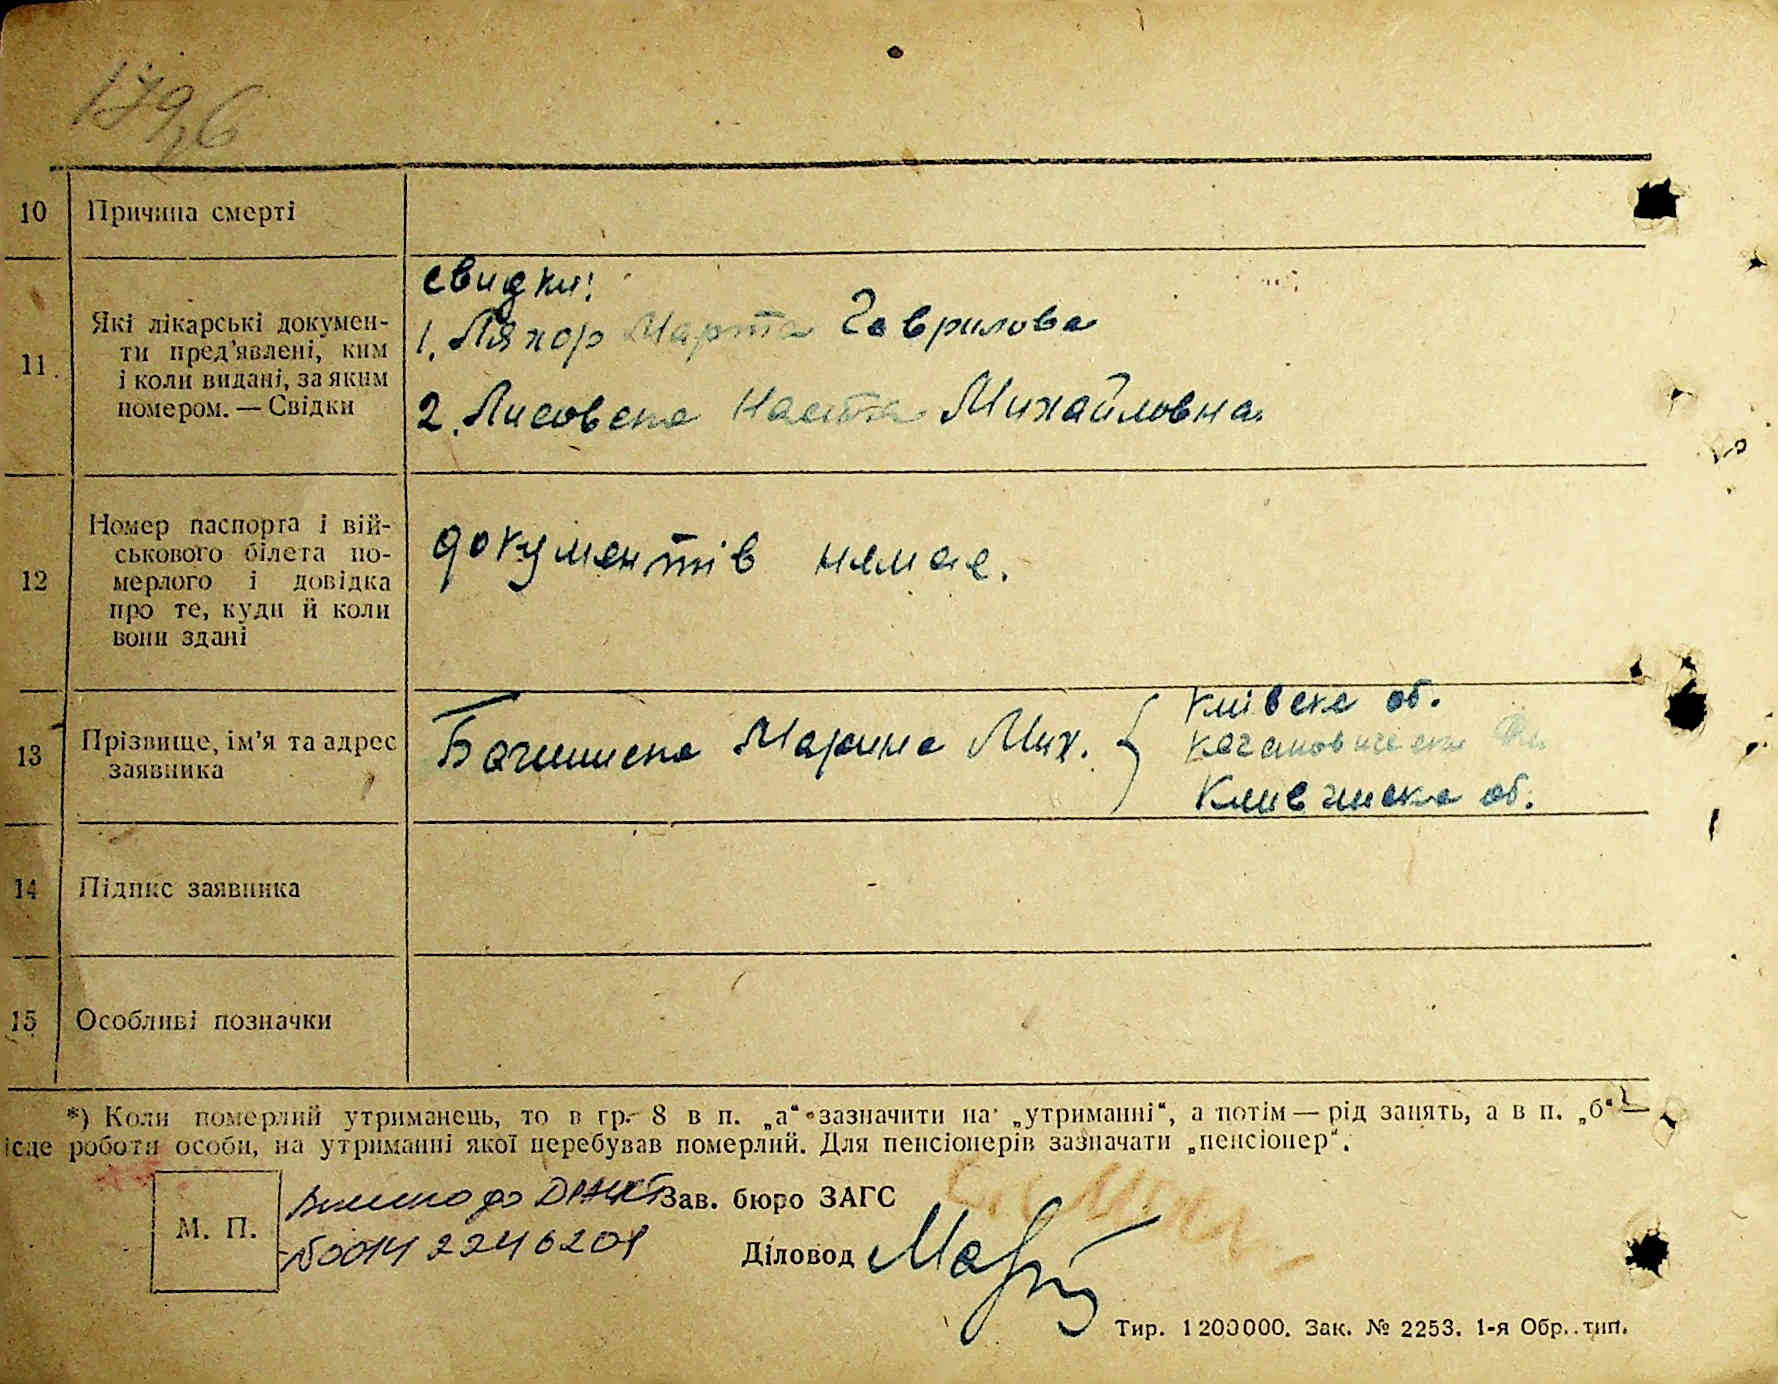 1796
10 Причина смерті
11 Які лікарські докумен-
ти пред’явлені, ким
і коли видані, за яким
номером. — Свідки
свидки:
1. Ляхор Марта Гаврилова
2. Лисовска Настя Михайловна
12 Номер паспорта і вій-
ськового білета по-
мерлого і довідка
про те, куди й коли
вони здані
документів немае.
13 Прізвище, ім’я та адрес
заявника
Марина Мих.
Київска об.
об.
14 Підпис заявника
15 Особливі позначки
*) Коли померлий утриманець, то в гр. 8 в п. „а“ зазначити на „утриманні“, а потім — рід занять, а в п. „б“ —
ісце роботи особи, на утриманні якої перебував померлий. Для пенсіонерів зазначати „пенсіонер“.
М. П.
Внесено до ДРАЦСГ
№ 00142246201
Зав. бюро ЗАГС
Діловод
Тир. 1200000. Зак. № 2253. 1-я Обр. тип.